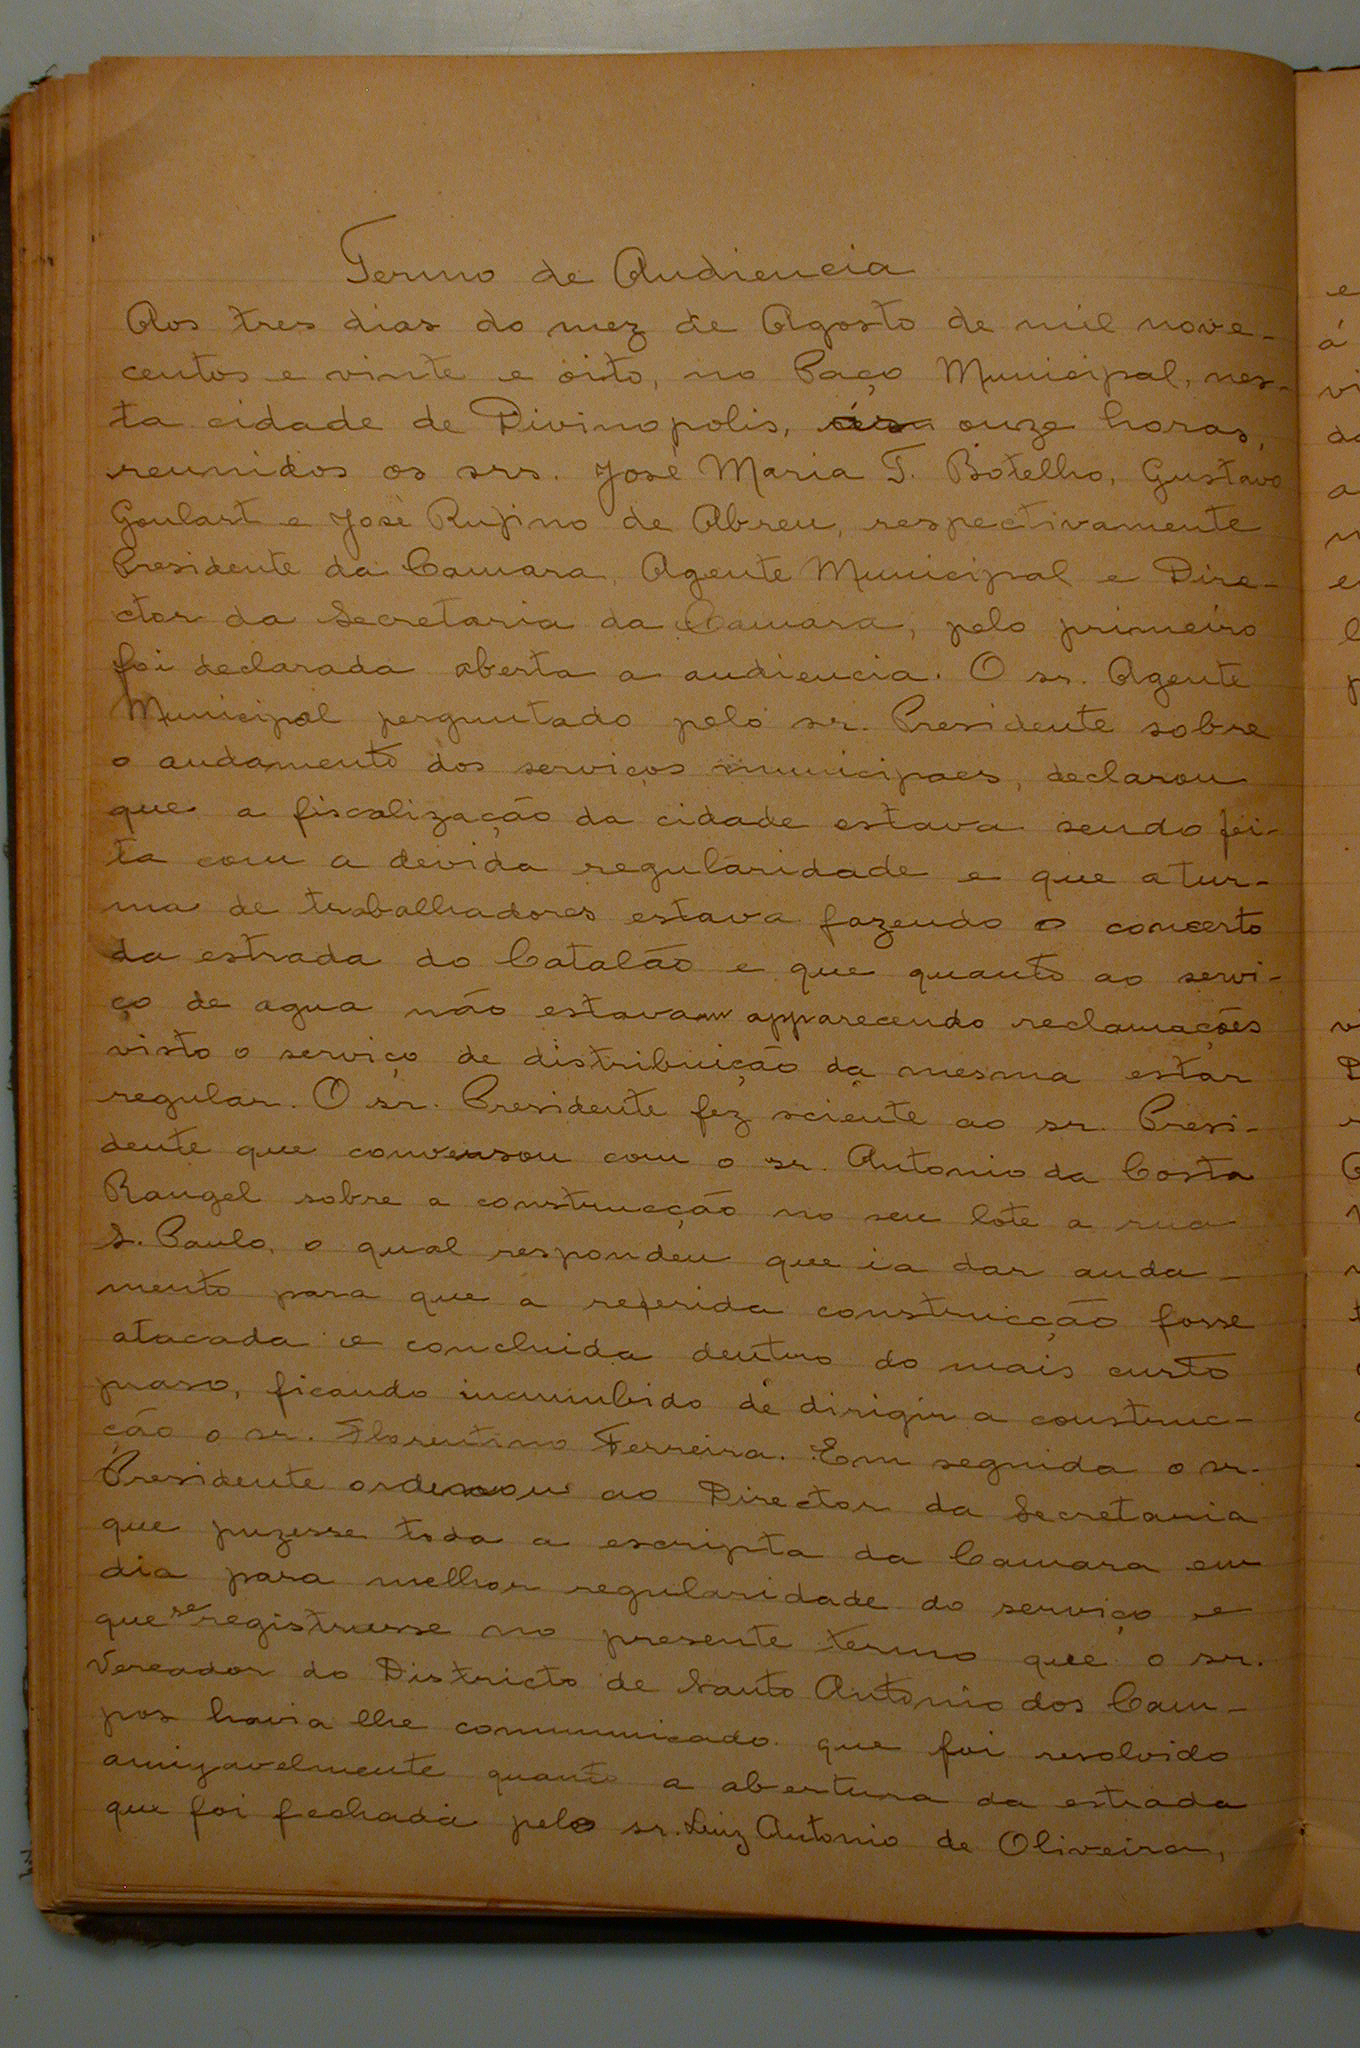 Termo de Audiencia
Aos tres dias do mez de Agosto de mil nove-
centos e vinte e oito, no Paço Municipal, nes-
ta cidade de Divinopolis, ás onze horas,
reunidos os srs. José Maria T. Botelho, Gustavo
Goulart e José Rufino de Abreu, respectivamente
Presidente da Camara, Agente Municipal e Dire-
ctor da Secretaria da Camara, pelo primeiro
foi declarada aberta a audiencia. O sr. Agente
Municipal perguntado pelo sr. Presidente sobre
o andamento dos serviços municipaes, declarou
que a fiscalização da cidade estava sendo fei-
ta com a devida regularidade e que a tur-
ma de trabalhadores estava fazendo o concerto
da estrada do Catalão e que quanto ao servi-
ço de agua não estavam apparecendo reclamações
visto o serviço de distribuição da mesma estar
regular. O sr. Presidente fez sciente ao sr. Presi-
dente que conversou com o sr. Antonio da Costa
Rangel sobre a construcção no seu lote a rua
S. Paulo, o qual respondeu que ia dar anda-
mento para que a referida construcção fosse
atacada e concluida dentro do mais curto
praso, ficando incumbido de dirigir a construc-
ção o sr. Florentino Ferreira. Em seguida o sr.
Presidente ordenou ao Director da Secretaria
que puzesse toda a escripta da Camara em
dia para melhor regularidade do serviço e
que se registrasse no presente termo que o sr.
Vereador do Districto de Santo Antonio dos Cam-
pos havia lhe communicado que foi resolvido
amigavelmente quanto a abertura da estrada
que foi fechada pelo sr. Luiz Antonio de Oliveira,